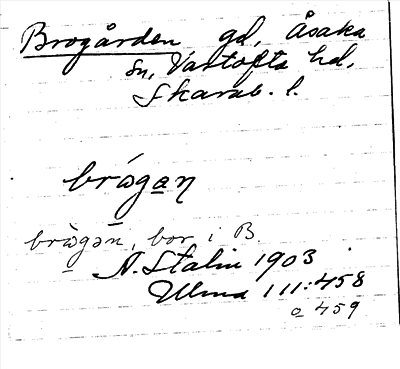 Brogården gd, Åsaka
sn, Vartofta hd,
Skarab. l.
brωgaɳ
brωgən, bor i B.
A. Stalin 1903
Ulma 111:458
o 459